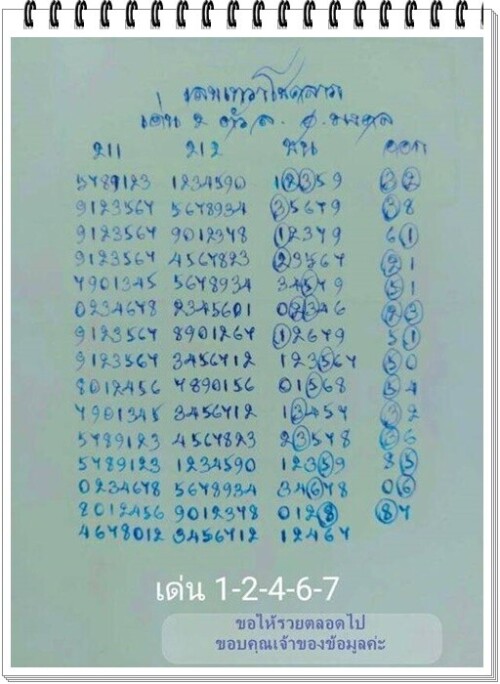 เด่น 2 ตัว
211 212 ชน ออก
5789123 1234590 12359 32
9123567 5678934 35679 38
9123567 9012378 12379 61
9123567 4567823 23567 21
7901345 5678934 34579 51
0234678 2345601 02346 23
9123567 8901267 12679 51
9123567 3456712 123567 50
8012456 7890156 01568 54
7901345 3456712 13457 32
5789123 4567823 23578 36
5789123 1234590 12359 85
0234678 5678934 34678 06
8012456 9012378 0128 87
4678012 3456712 12467
เด่น 1-2-4-6-7
ขอให้รวยตลอดไป
ขอบคุณเจ้าของข้อมูลค่ะ